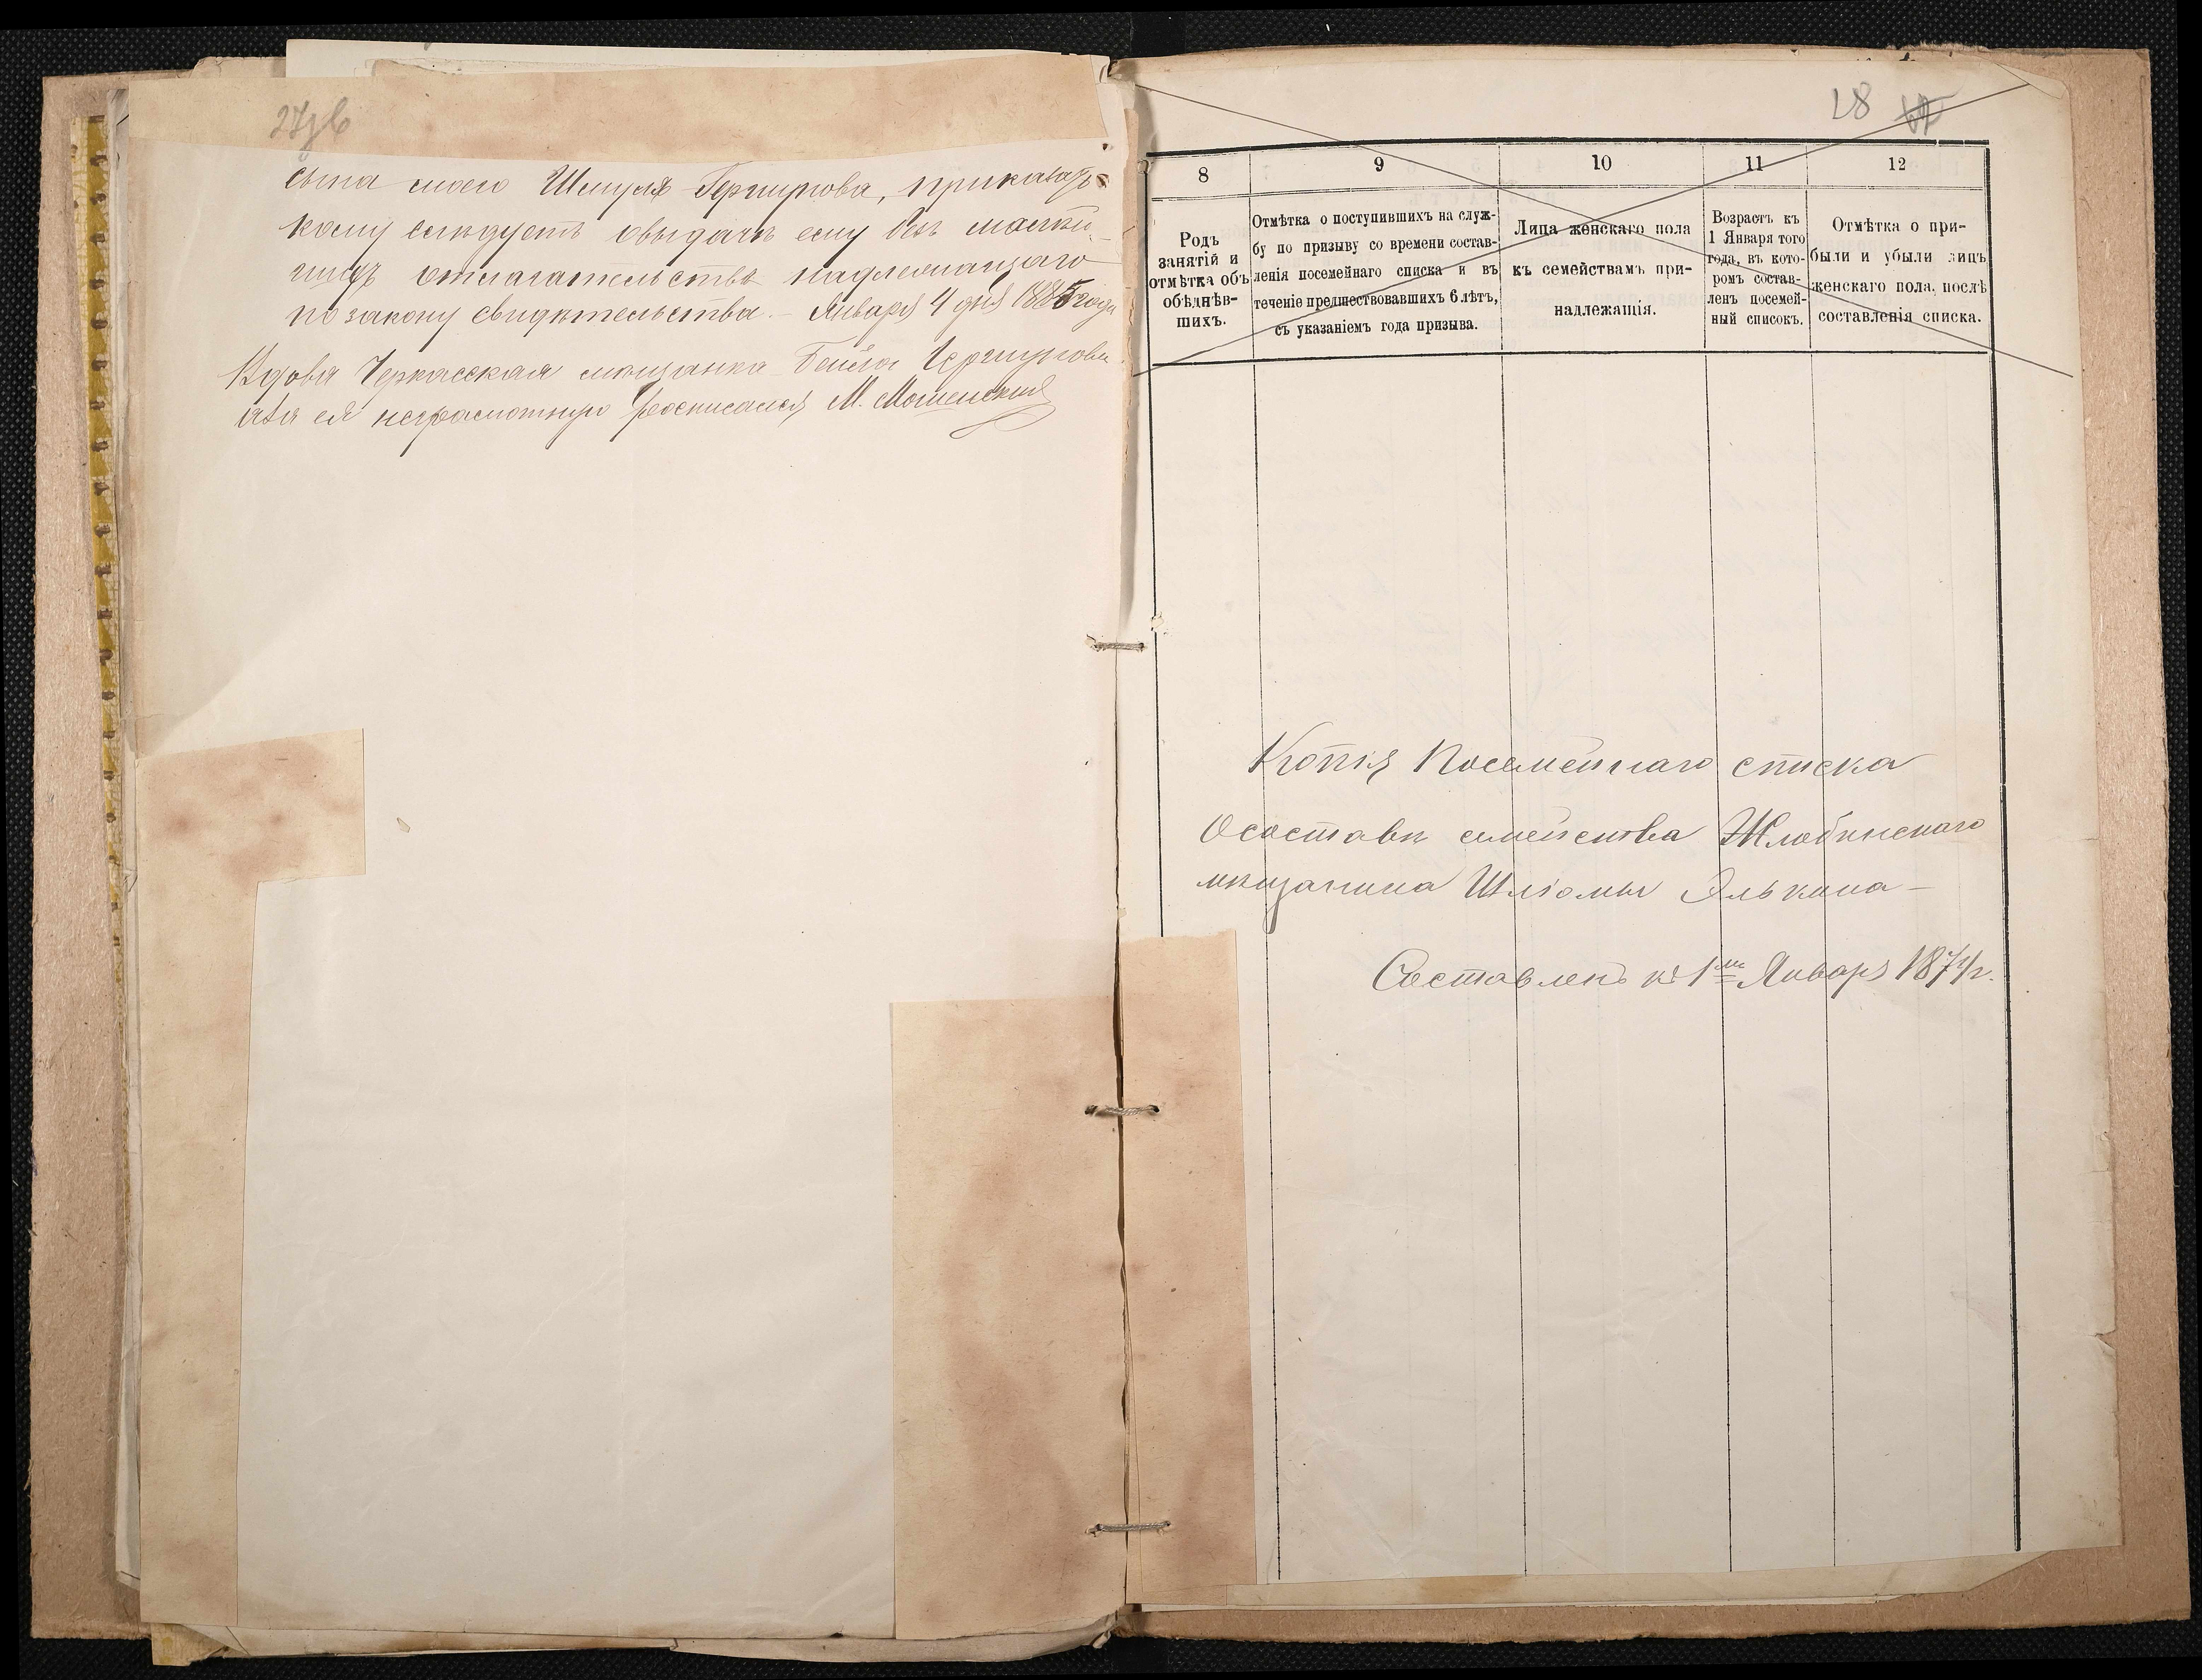 27зв
сына моего Шмуля Гершунова, приказать
кому слѣдуетъ о выдачѣ ему безъ
отлагательствъ надлежащаго
по закону свидѣтельства. – Января 4 дня 1885 года
Вдова Черкасская мѣщанка Бейла
а за ея неграмотную росписался М.
28
8
9
10
11
12
Родъ
занятій и
отмѣтка объ
обѣднѣв-
шихъ.
Отмѣтка о поступившихъ на служ-
бу по призыву со времени состав-
ленія посемейнаго списка и въ
теченіе предшествовавшихъ 6 лѣтъ,
съ указаніемъ года призыва.
Лица женскаго пола
къ семействамъ при-
надлежащія.
Возрастъ къ
1 Января того
года, въ кото-
ромъ состав-
ленъ посемей-
ный списокъ.
Отмѣтка о при-
были и убыли лицъ
женскаго пола, послѣ
составленія списка.
Копія Посемейнаго списка
О составѣ семейства Жлобинскаго
мѣщанина Шліомы Элькина –
Составленъ къ 1му Января 1874 г.